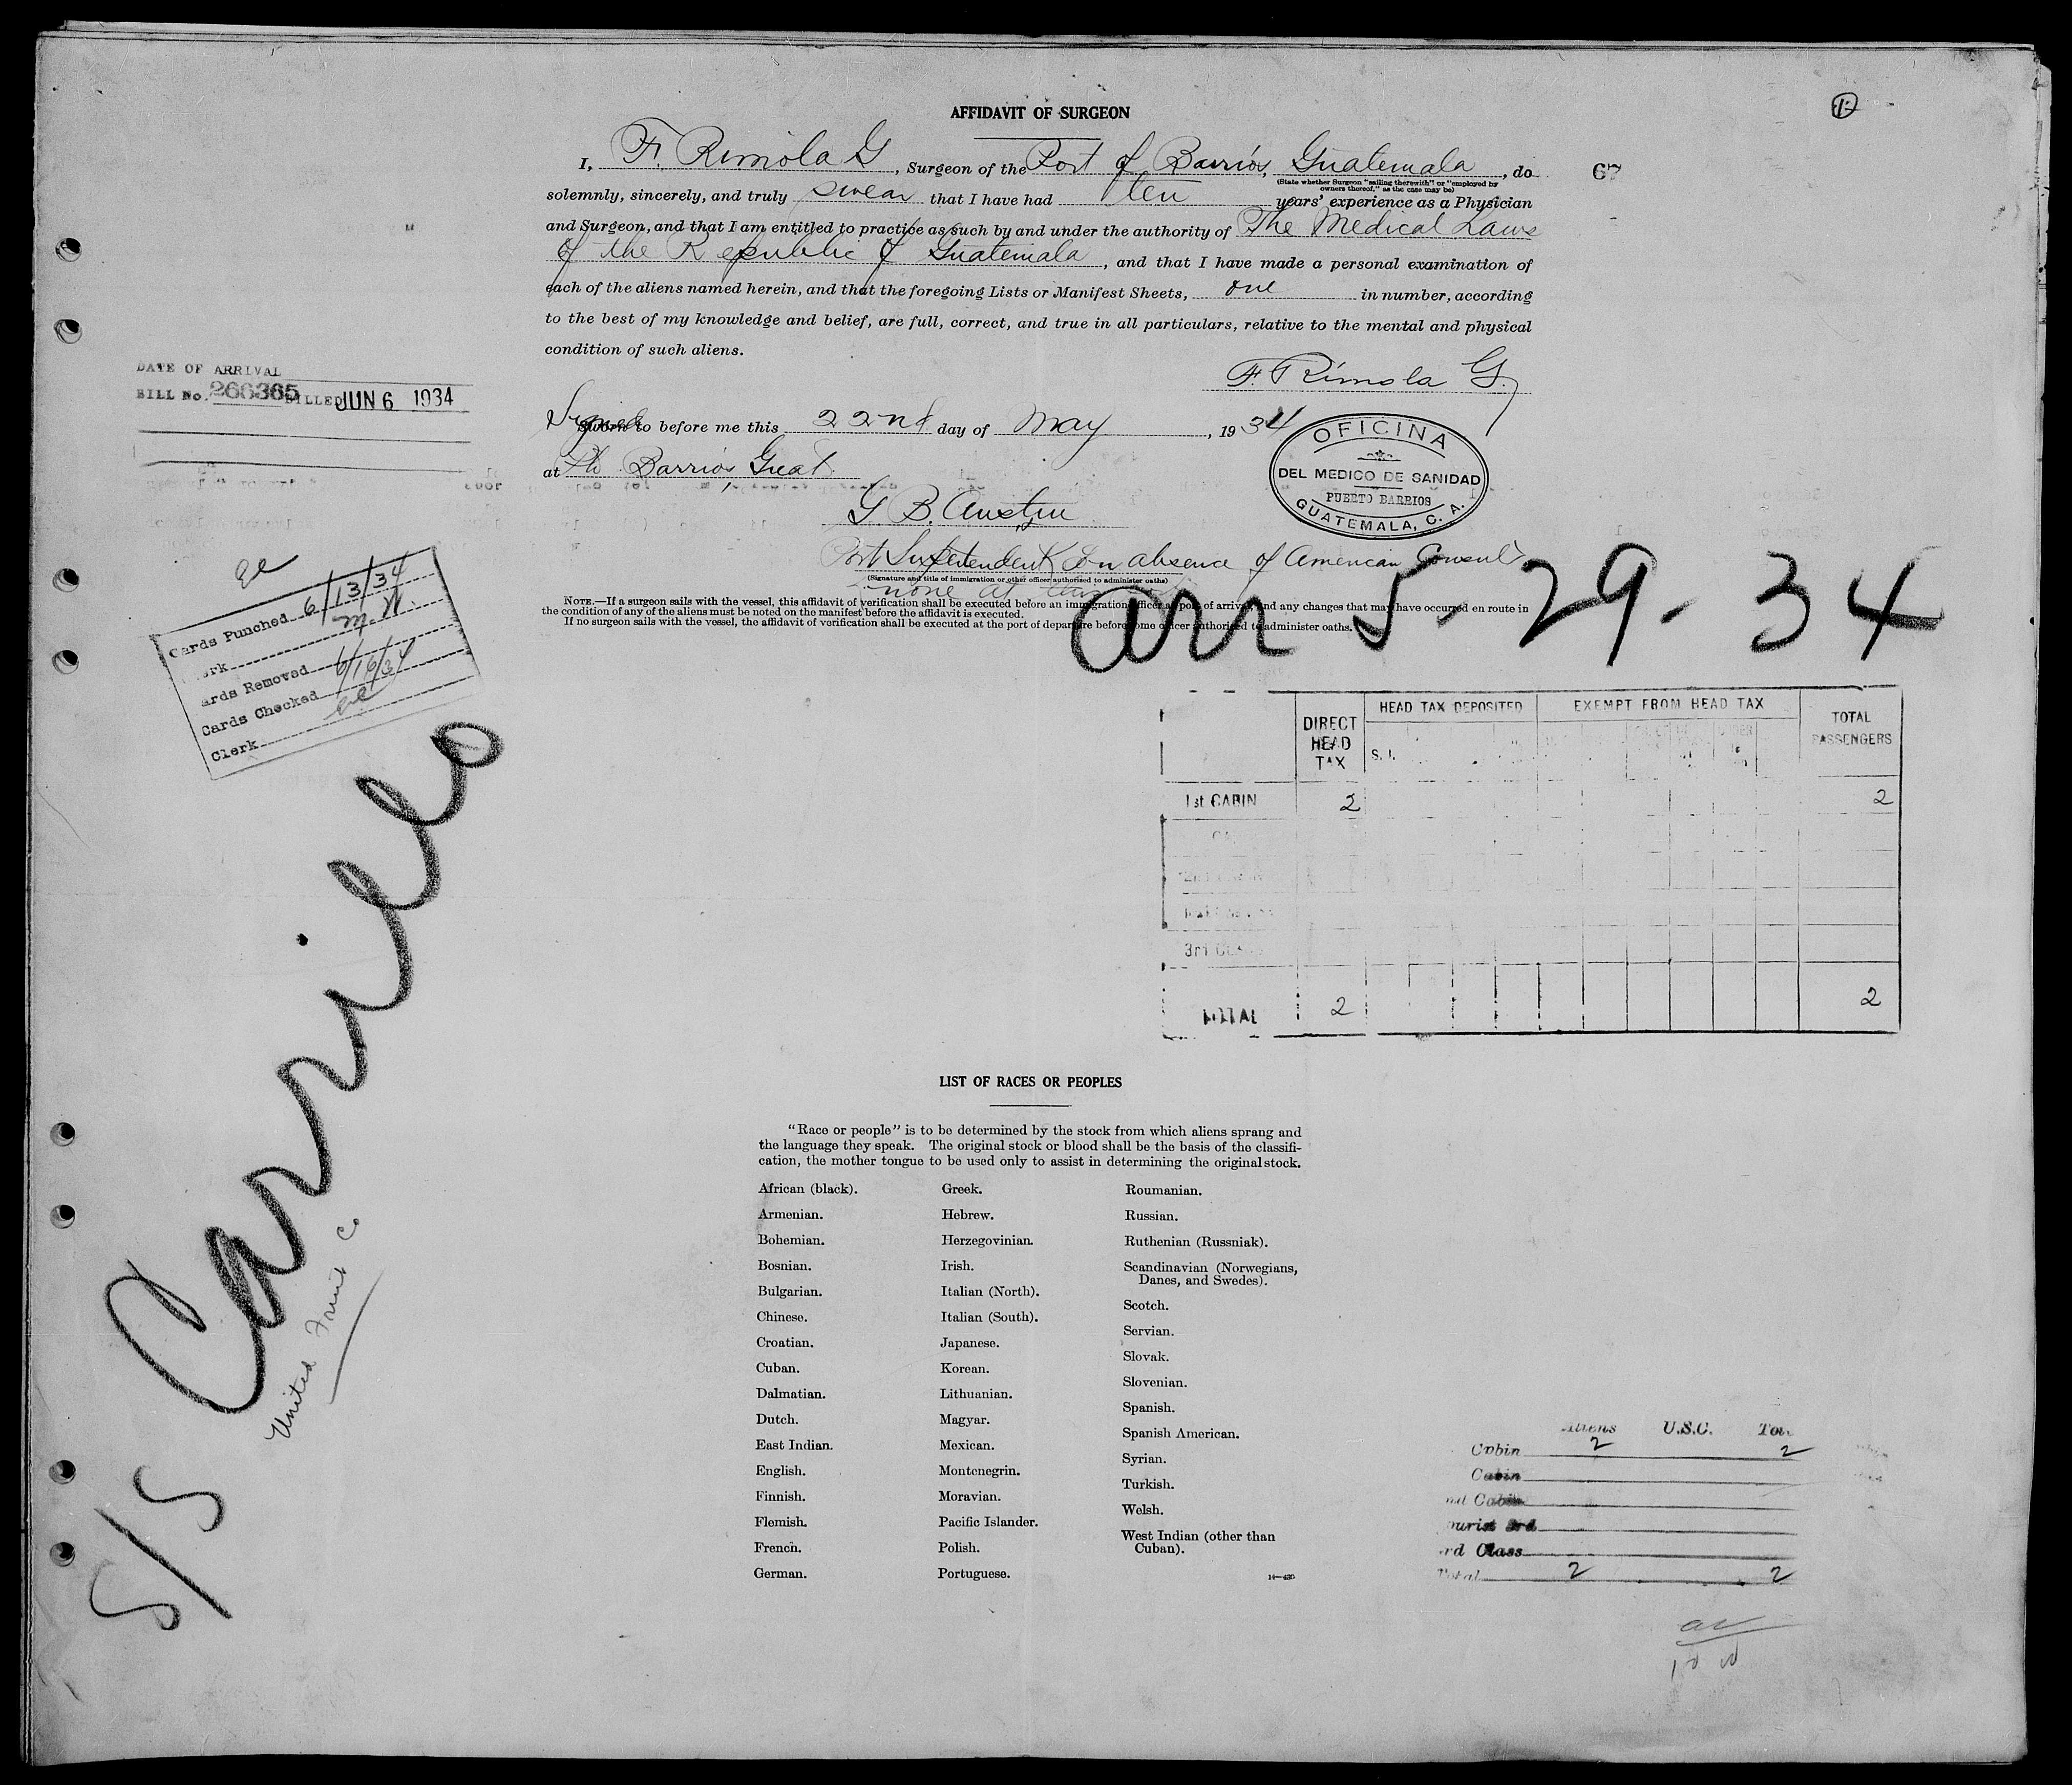 AFFIDAVIT OF SURGEON
1
I, F. Rimola G, Surgeon of the Port of Barrios, Guatemala, do
67
(State whether Surgeon "sailing therewith" or "employed by
owners thereof," as the case may be)
solemnly, sincerely, and truly swear that I have had ten years' experience as a Physician
and Surgeon, and that I am entitled to practice as such by and under the authority of The Medical Laws
of the Republic of Guatemala, and that I have made a personal examination of
each of the aliens named herein, and that the foregoing Lists or Manifest Sheets, one in number, according
to the best of my knowledge and belief, are full, correct, and true in all particulars, relative to the mental and physical
condition of such aliens.
F. Rimola G.
DATE OF ARRIVAL
BILL No. 266365 BILLED JUN 6 1934
Signed to before me this 22nd day of May, 1934
at Pto Barrios Guat.
OFICINA
DEL MEDICO DE SANIDAD
PUERTO BARRIOS
GUATEMALA, C. A.
G. B. Austin
Port Superintendent in absence of American Consul
(Signature and title of immigration or other officer authorized to administer oaths)
none at
NOTE.—If a surgeon sails with the vessel, this affidavit of verification shall be executed before an immigration officer at port of arrival and any changes that may have occurred en route in
the condition of any of the aliens must be noted on the manifest before the affidavit is executed.
If no surgeon sails with the vessel, the affidavit of verification shall be executed at the port of departure before some officer authorized to administer oaths.
arr 5-29-34
Cards Punched 6/13/34
Clerk M.N.
Cards Removed
Cards Checked 6/16/34
Clerk
S/S Carrillo
United Fruit Co
DIRECT HEAD TAX
HEAD TAX DEPOSITED
EXEMPT FROM HEAD TAX
TOTAL PASSENGERS
S. I.
1st CABIN 2 2
3rd
TOTAL 2 2
LIST OF RACES OR PEOPLES
"Race or people" is to be determined by the stock from which aliens sprang and
the language they speak. The original stock or blood shall be the basis of the classifi-
cation, the mother tongue to be used only to assist in determining the original stock.
African (black).
Armenian.
Bohemian.
Bosnian.
Bulgarian.
Chinese.
Croatian.
Cuban.
Dalmatian.
Dutch.
East Indian.
English.
Finnish.
Flemish.
French.
German.
Greek.
Hebrew.
Herzegovinian.
Irish.
Italian (North).
Italian (South).
Japanese.
Korean.
Lithuanian.
Magyar.
Mexican.
Montenegrin.
Moravian.
Pacific Islander.
Polish.
Portuguese.
Roumanian.
Russian.
Ruthenian (Russniak).
Scandinavian (Norwegians,
Danes, and Swedes).
Scotch.
Servian.
Slovak.
Slovenian.
Spanish.
Spanish American.
Syrian.
Turkish.
Welsh.
West Indian (other than
Cuban).
Aliens U.S.C.
Cabin 2 2
Cabin
Cabin
3rd
Class
Total 2 2